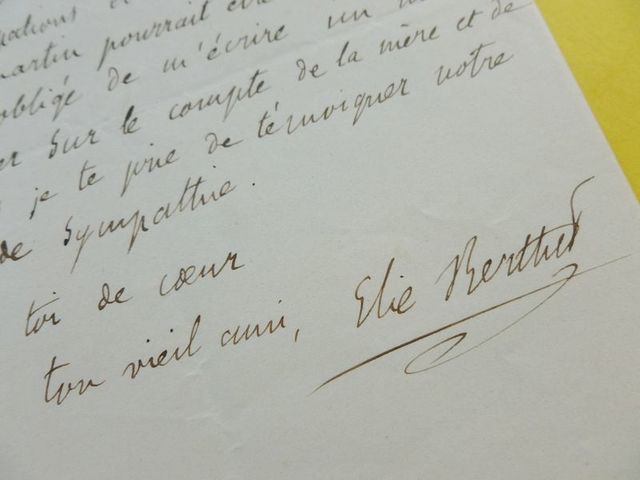 uations et
martin pourrait être
obligé de m'écrire un m
er sur le compte de la mère et de
je te prie de témoigner votre
de sympathie.
toi de cœur
ton vieil ami, Elie Berthet